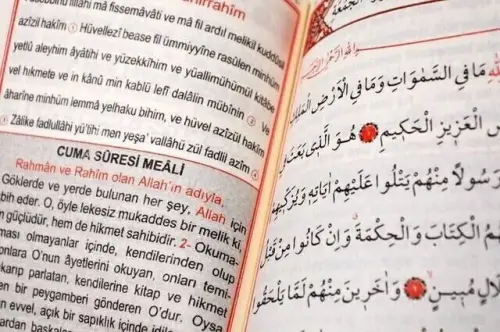 fissemâvâti ve mâ fil ardıl melikil kuddûsil
azîzil hakîm Hüvellezî bease fil ümmiyyîne rasûlen minhüm
yetlû aleyhim âyâtihi ve yüzekkîhim ve yüallimühümül kitâbe
vel hıkmete ve in kânû min kablü lefî dalâlin mübînin Ve
âharîne minhüm lemmâ yelhaku bihim, ve hüvel azîzül hakîm
Zâlike fadlullâhi yü'tîhi men yeşa' vallâhü zül fadlil azîm
CUMA SÛRESİ MEÂLİ
Rahmân ve Rahîm olan Allah'ın adıyla.
Göklerde ve yerde bulunan her şey, Allah için
bih eder. O, öyle lekesiz mukaddes bir melik ki,
güçlüdür, hem de hikmet sahibidir. 2- Okuma-
ması olmayanlar içinde, kendilerinden olup
onlara O'nun âyetlerini okuyan, onları temi-
karıp parlatan, kendilerine kitap ve hikmet
bir peygamberi gönderen O'dur. Oysa
evvel, açık bir sapıklık içinde
مَا فِي السَّمٰوَاتِ وَمَا فِي الْاَرْضِ الْمَلِكِ
الْعَزِيزِ الْحَكِيمِ ١ هُوَ الَّذِي بَعَثَ
رَسُولًا مِنْهُمْ يَتْلُوا عَلَيْهِمْ اٰيَاتِهِ وَيُزَكِّيهِمْ
الْكِتَابَ وَالْحِكْمَةَ وَاِنْ كَانُوا مِنْ قَبْلُ
مُبِينٍ ٢ وَاٰخَرِينَ مِنْهُمْ لَمَّا يَلْحَقُوا